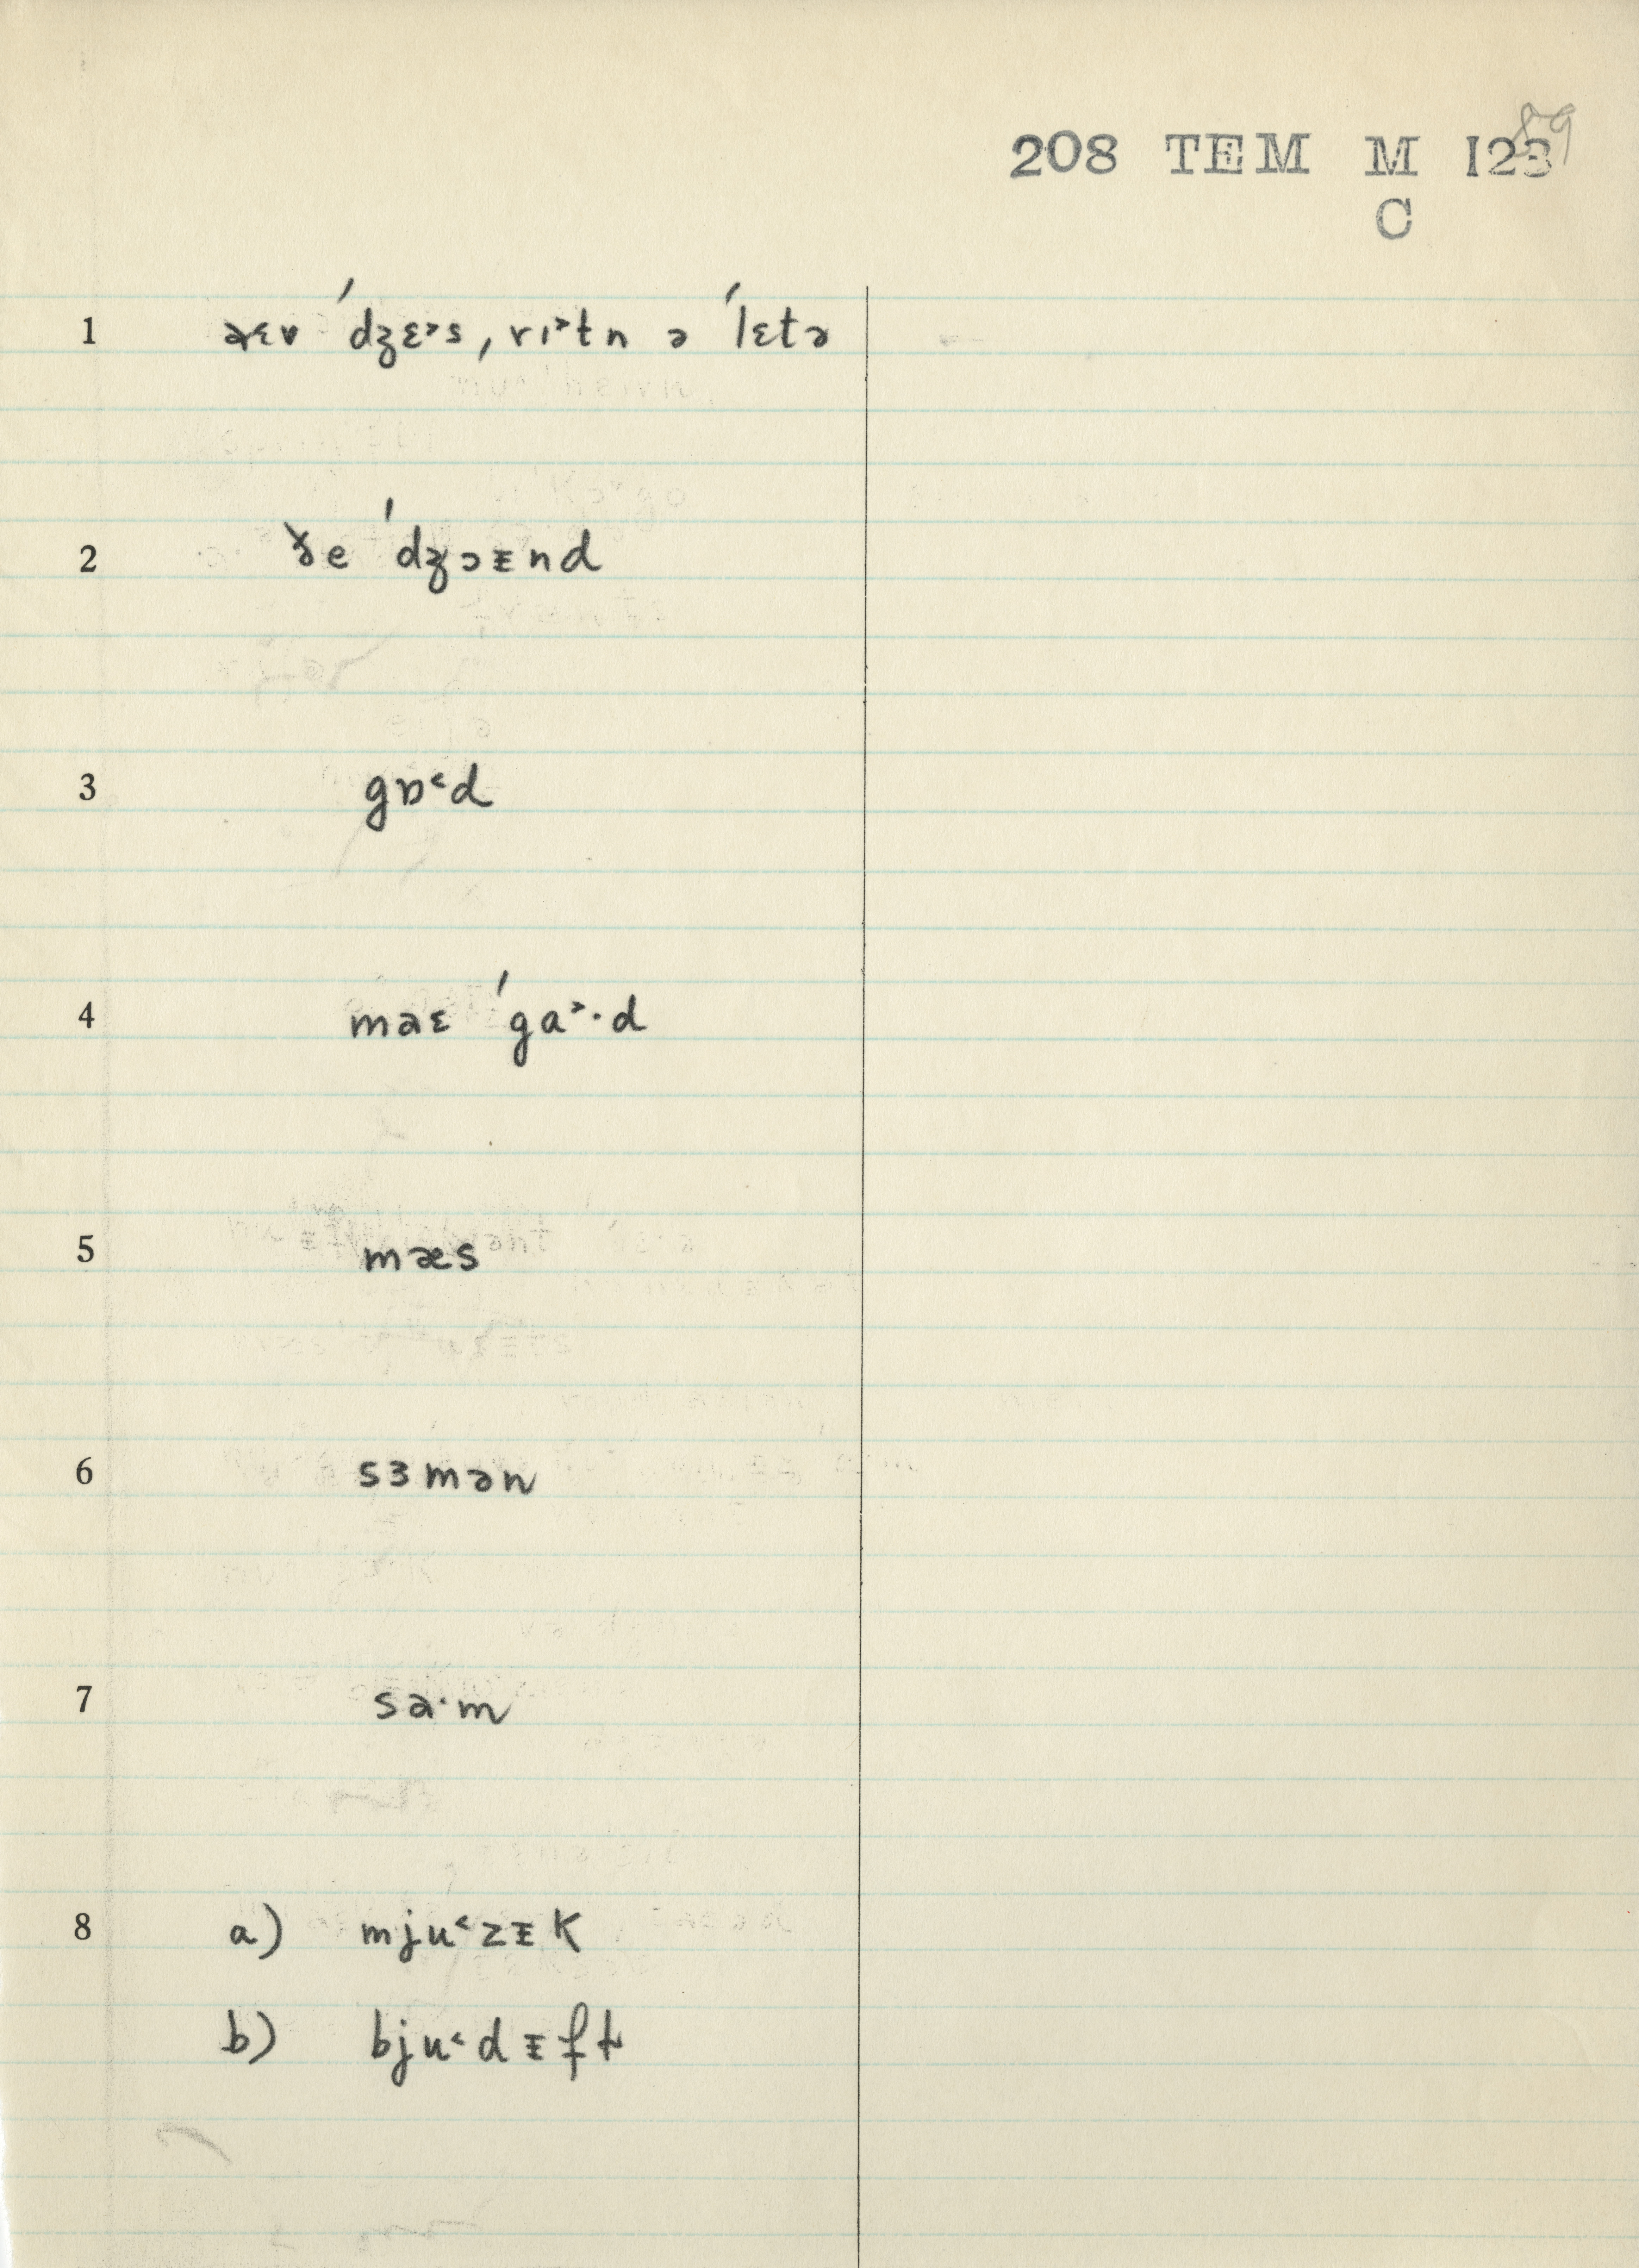 89
208 TEM M 123
C
1 aɛv ˈdʒɛ˃s, rɪ˃tn ə ˈlɛtə
2 ðe ˈdʒɔᵻnd
3 gɒ˂d
4 maɛ ˈga˃·d
5 mæs
6 sɜmən
7 sa·m
8 a) mju˂zᵻk
b) bju˂dᵻft